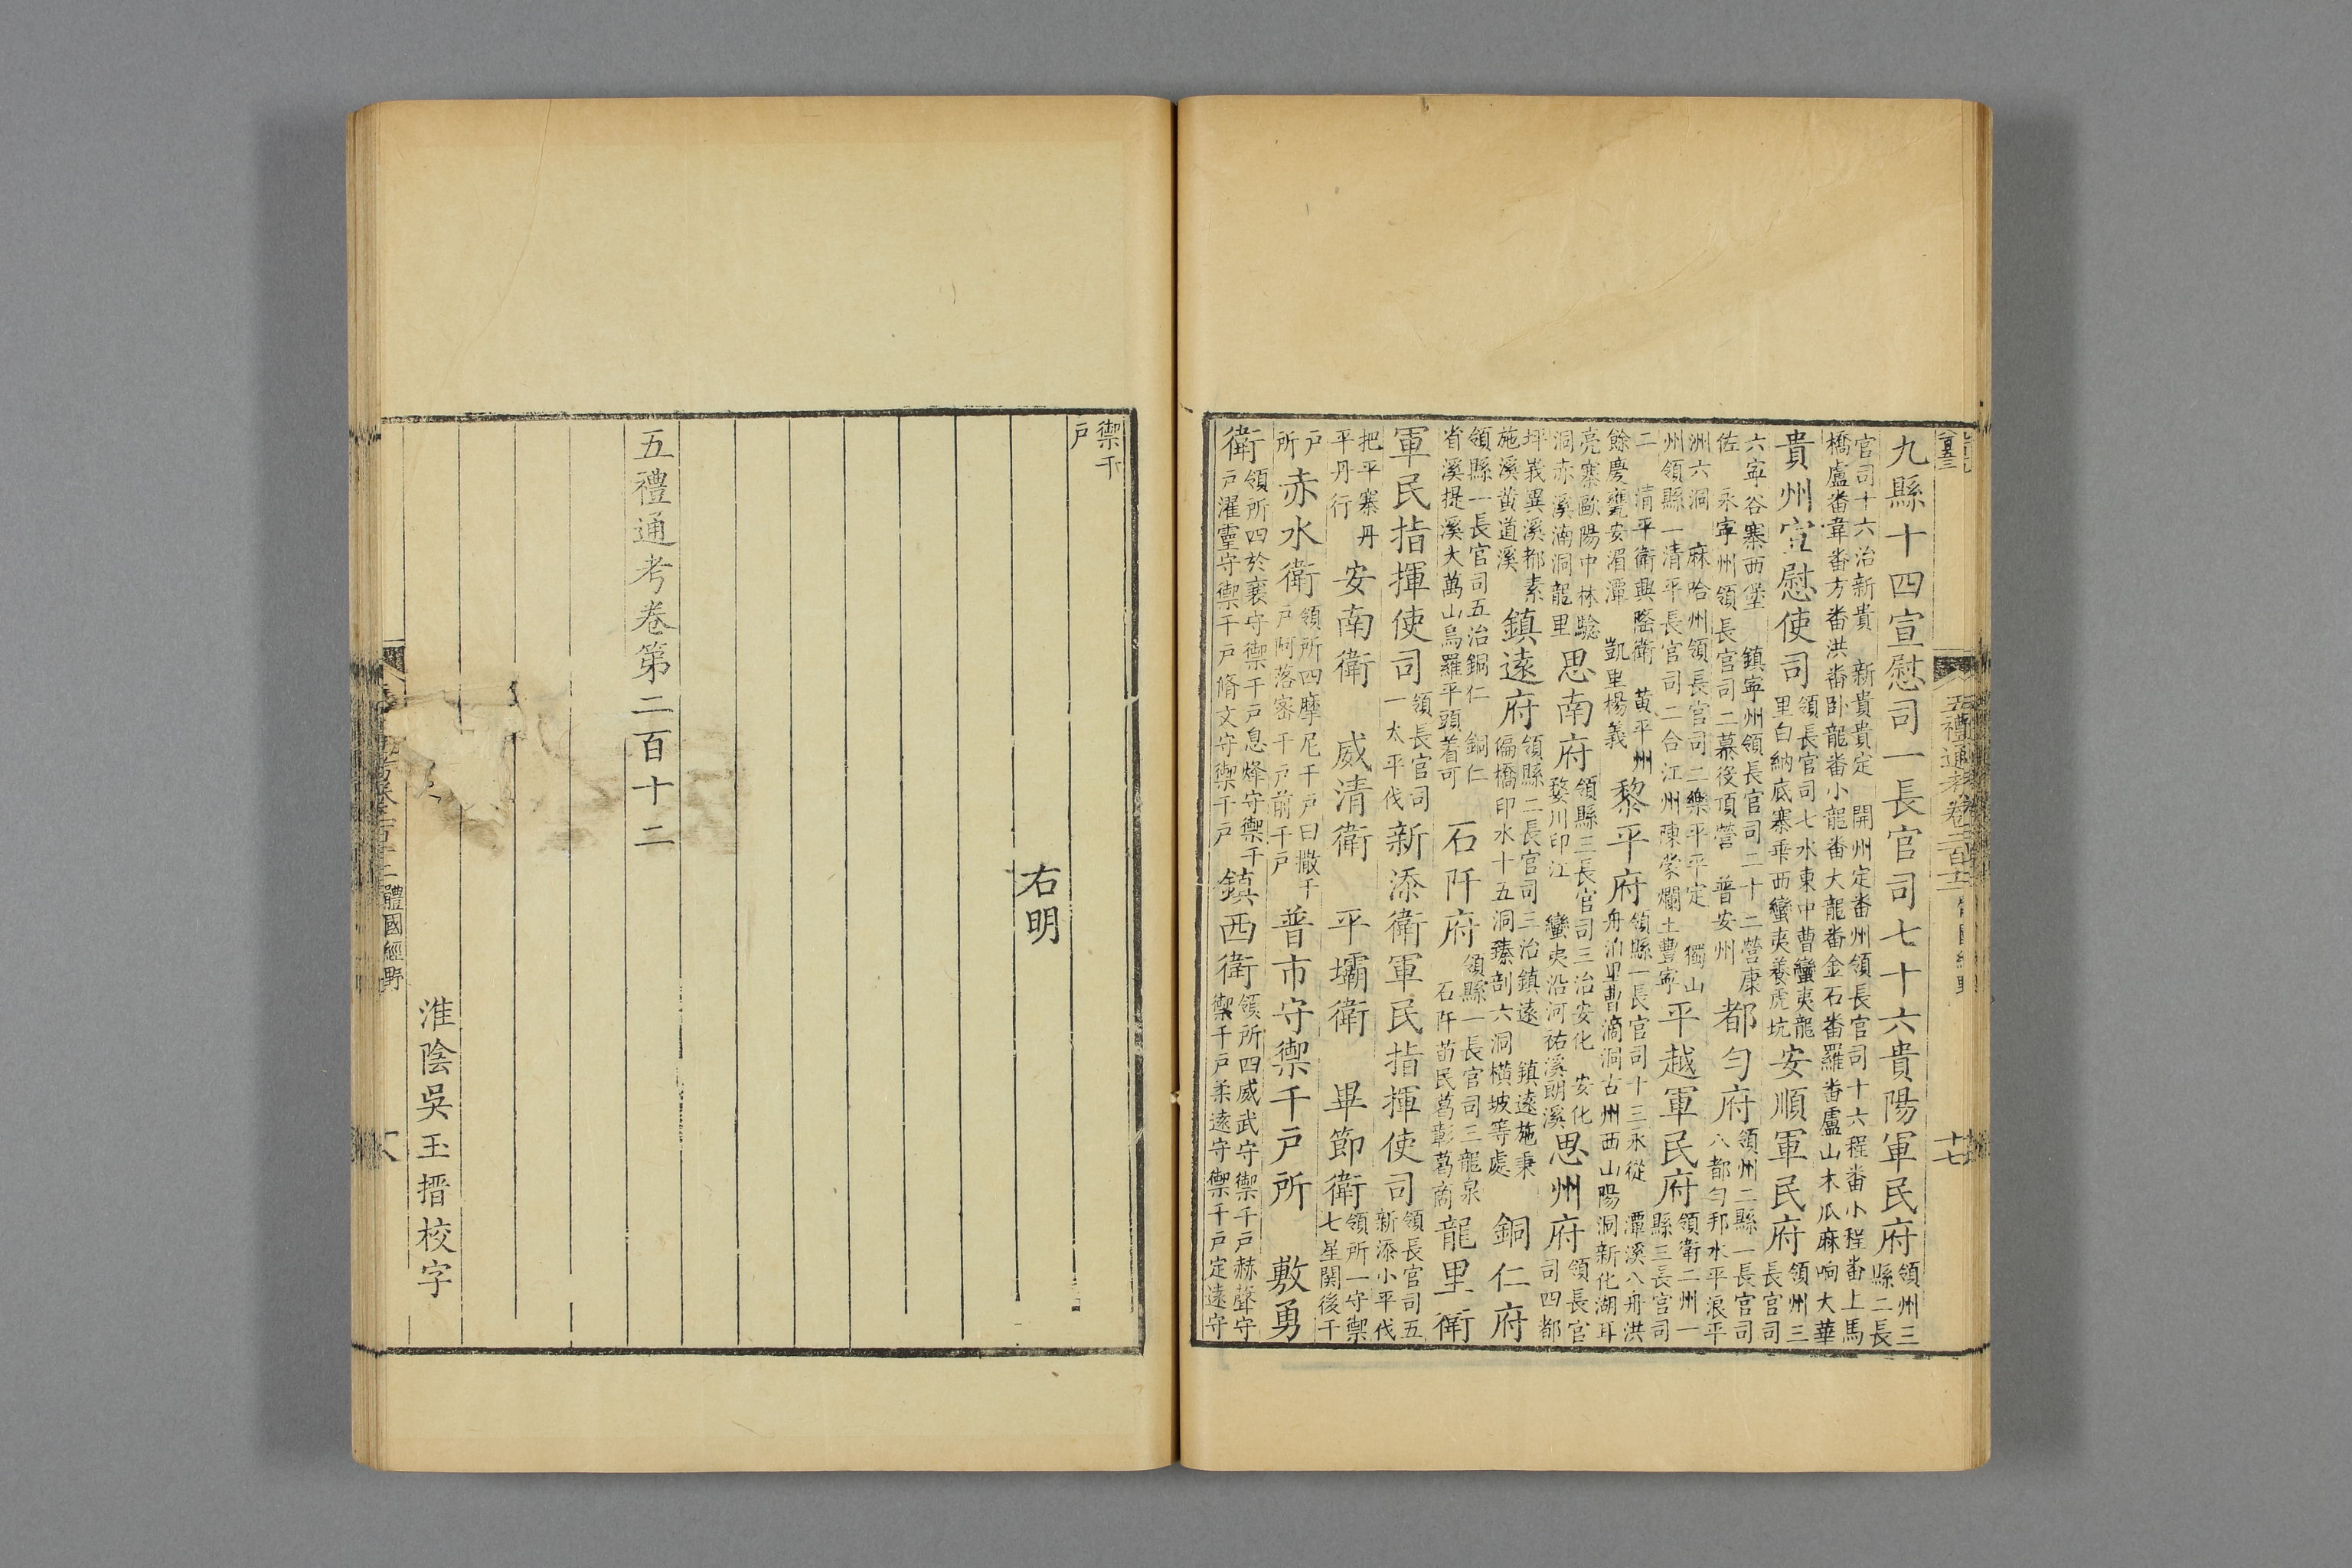 五禮通考卷二百十二
十七
九縣十四宣慰司一長官司七十六貴陽軍民府領州三縣二長
官司十六治新貴　新貴貴定　開州定番州領長官司十六程番小程番上馬橋盧番韋番方番洪番卧龍番小龍番大龍番金石番羅番盧山木瓜麻响大華
貴州宣慰使司領長官司七水東中曹蠻夷龍里白納底寨乖西蠻夷養虎坑安順軍民府領州三長官司
六寜谷寨西堡　鎮寜州領長官司二十二營康佐　永寜州領長官司二慕役頂營　普安州都勻府領州二縣一長官司八都勻邦水平浪平
洲六洞　麻哈州領長官司二樂平平定　獨山州領縣一清平長官司二合江州陳蒙爛土豐寧平越軍民府領衛二州一縣三長官司
二　清平衛興隆衛　黄平州餘慶甕安湄潭　凱里楊義黎平府領縣一長官司十三永從　潭溪八舟洪舟泊里曹滴洞古州西山陽洞新化湖耳
亮寨歐陽中林驗洞赤溪湳洞龍里思南府領縣三長官司三治安化　安化婺川印江　蠻夷沿河祐溪朗溪思州府領長官司四都
坪峩異溪都素施溪黄道溪鎮遠府領縣二長官司三治鎮遠　鎮遠施秉偏橋印水十五洞臻剖六洞橫坡等處　銅仁府
領縣一長官司五治銅仁　銅仁省溪提溪大萬山烏羅平頭着可　石阡府領縣一長官司三龍泉石阡苗民葛彰葛商龍里衛
軍民指揮使司領長官司一大平伐新添衛軍民指揮使司領長官司五新添小平伐
把平寨丹平丹行　安南衛　威清衛　平壩衛　畢節衛領所一守禦七星關後千
戸所赤水衛領所四摩尼千戸白撒千戸阿落密千戸前千戸　普市守禦千戸所　敷勇
衛領所四於襄守禦千戸息烽守禦千戸濯靈守禦千戸脩文守禦千戸　鎮西衛領所四威武守禦千戸赫聲守禦千戸柔遠守禦千戸定遠守
禦千戸
右明
五禮通考卷第二百十二
淮陰吳玉搢校字
體國經野